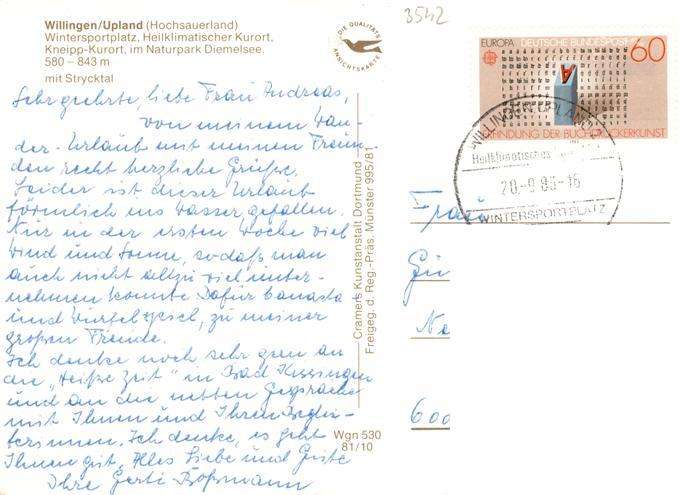 Willingen/Upland (Hochsauerland)
Wintersportplatz, Heilklimatischer Kurort,
Kneipp-Kurort, im Naturpark Diemelsee.
580 – 843 m
mit Strycktal
DIE QUALITÄTS
ANSICHTSKARTE
3542
EUROPA DEUTSCHE BUNDESPOST 60
ERFINDUNG DER BUCHDRUCKERKUNST
WILLINGEN, UPLAND
Heilklimatisches
20-9.83-16
WINTERSPORTPLATZ
Sehr geehrte, liebe Frau Andreas,
von meinem Wan-
der-Urlaub mit meinen Freun
den recht herzliche Grüße.
Leider ist dieser Urlaub
förmlich ins Wasser gefallen.
Nur in der ersten Woche viel
Wind und Sonne, sodaß man
auch nicht allzu viel unter-
nehmen konnte. Dafür Canasta
und Würfelspiel, zu meiner
großen Freude.
Ich denke noch sehr gern an
die „Heiße Zeit" in Bad Kissingen
und an die netten Gespräche
mit Ihnen und Ihren Beglei-
terinnen. Ich denke, es geht
Ihnen gut. Alles Liebe und Gute
Ihre Gerti Boßmann
Cramers Kunstanstalt Dortmund
Freigeg. d. Reg.-Präs. Münster 995/81
Wgn 530
81/10
Frau
Gü
Na
600